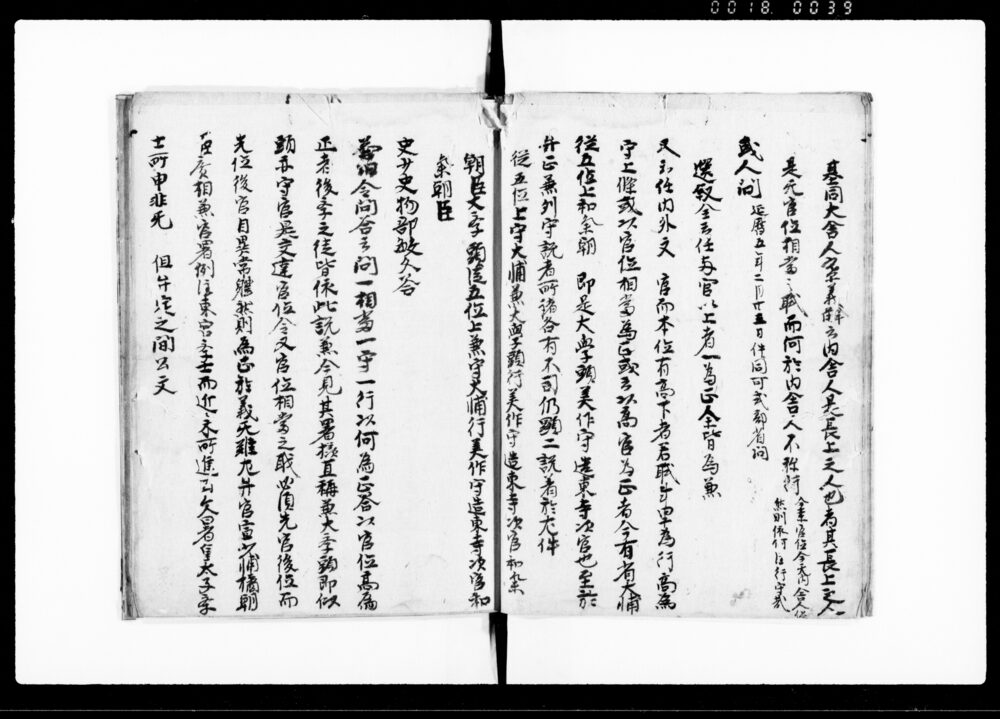 0018 0039
基同大舎人案義解云内舎人是長上之人也者其長上之人
是无官位相當之職而何於内舎人不称行
今案官位令大内舎人
然則依何注行守哉
或人問 延暦五年二月廿五日件同可式部省問
選叙令云任両官以上者一為正余皆為兼
又云任内外文 官而本位有高下者若職事卑為行高為
守上條或以官位相當為正或云以高官為正者今有省大輔
從五位上和気朝 即是大學頭美作守造東寺次官也至於
弁正兼列守説者所諸各有不同仍顕二説者於左件
從五位上守大輔兼大學頭行美作守造東寺次官和気
朝臣大季頭從五位上兼守大輔行美作守造東寺次官和
気朝臣
史少史物部敏久答
令問答云問一相當一守一行以何為正答以官位高為
正者後季之徒皆依此説兼今見其署様直稱兼大季頭即似
頭亦守官是文違官位令又官位相當之職必須先官後位而
先位後官目異常継然則為正於義无難左弁官宣少輔橘朝
臣廣相兼官署例注東宮季士而近来所進公文署皇太子季
士所申非无 但件姓之間公文